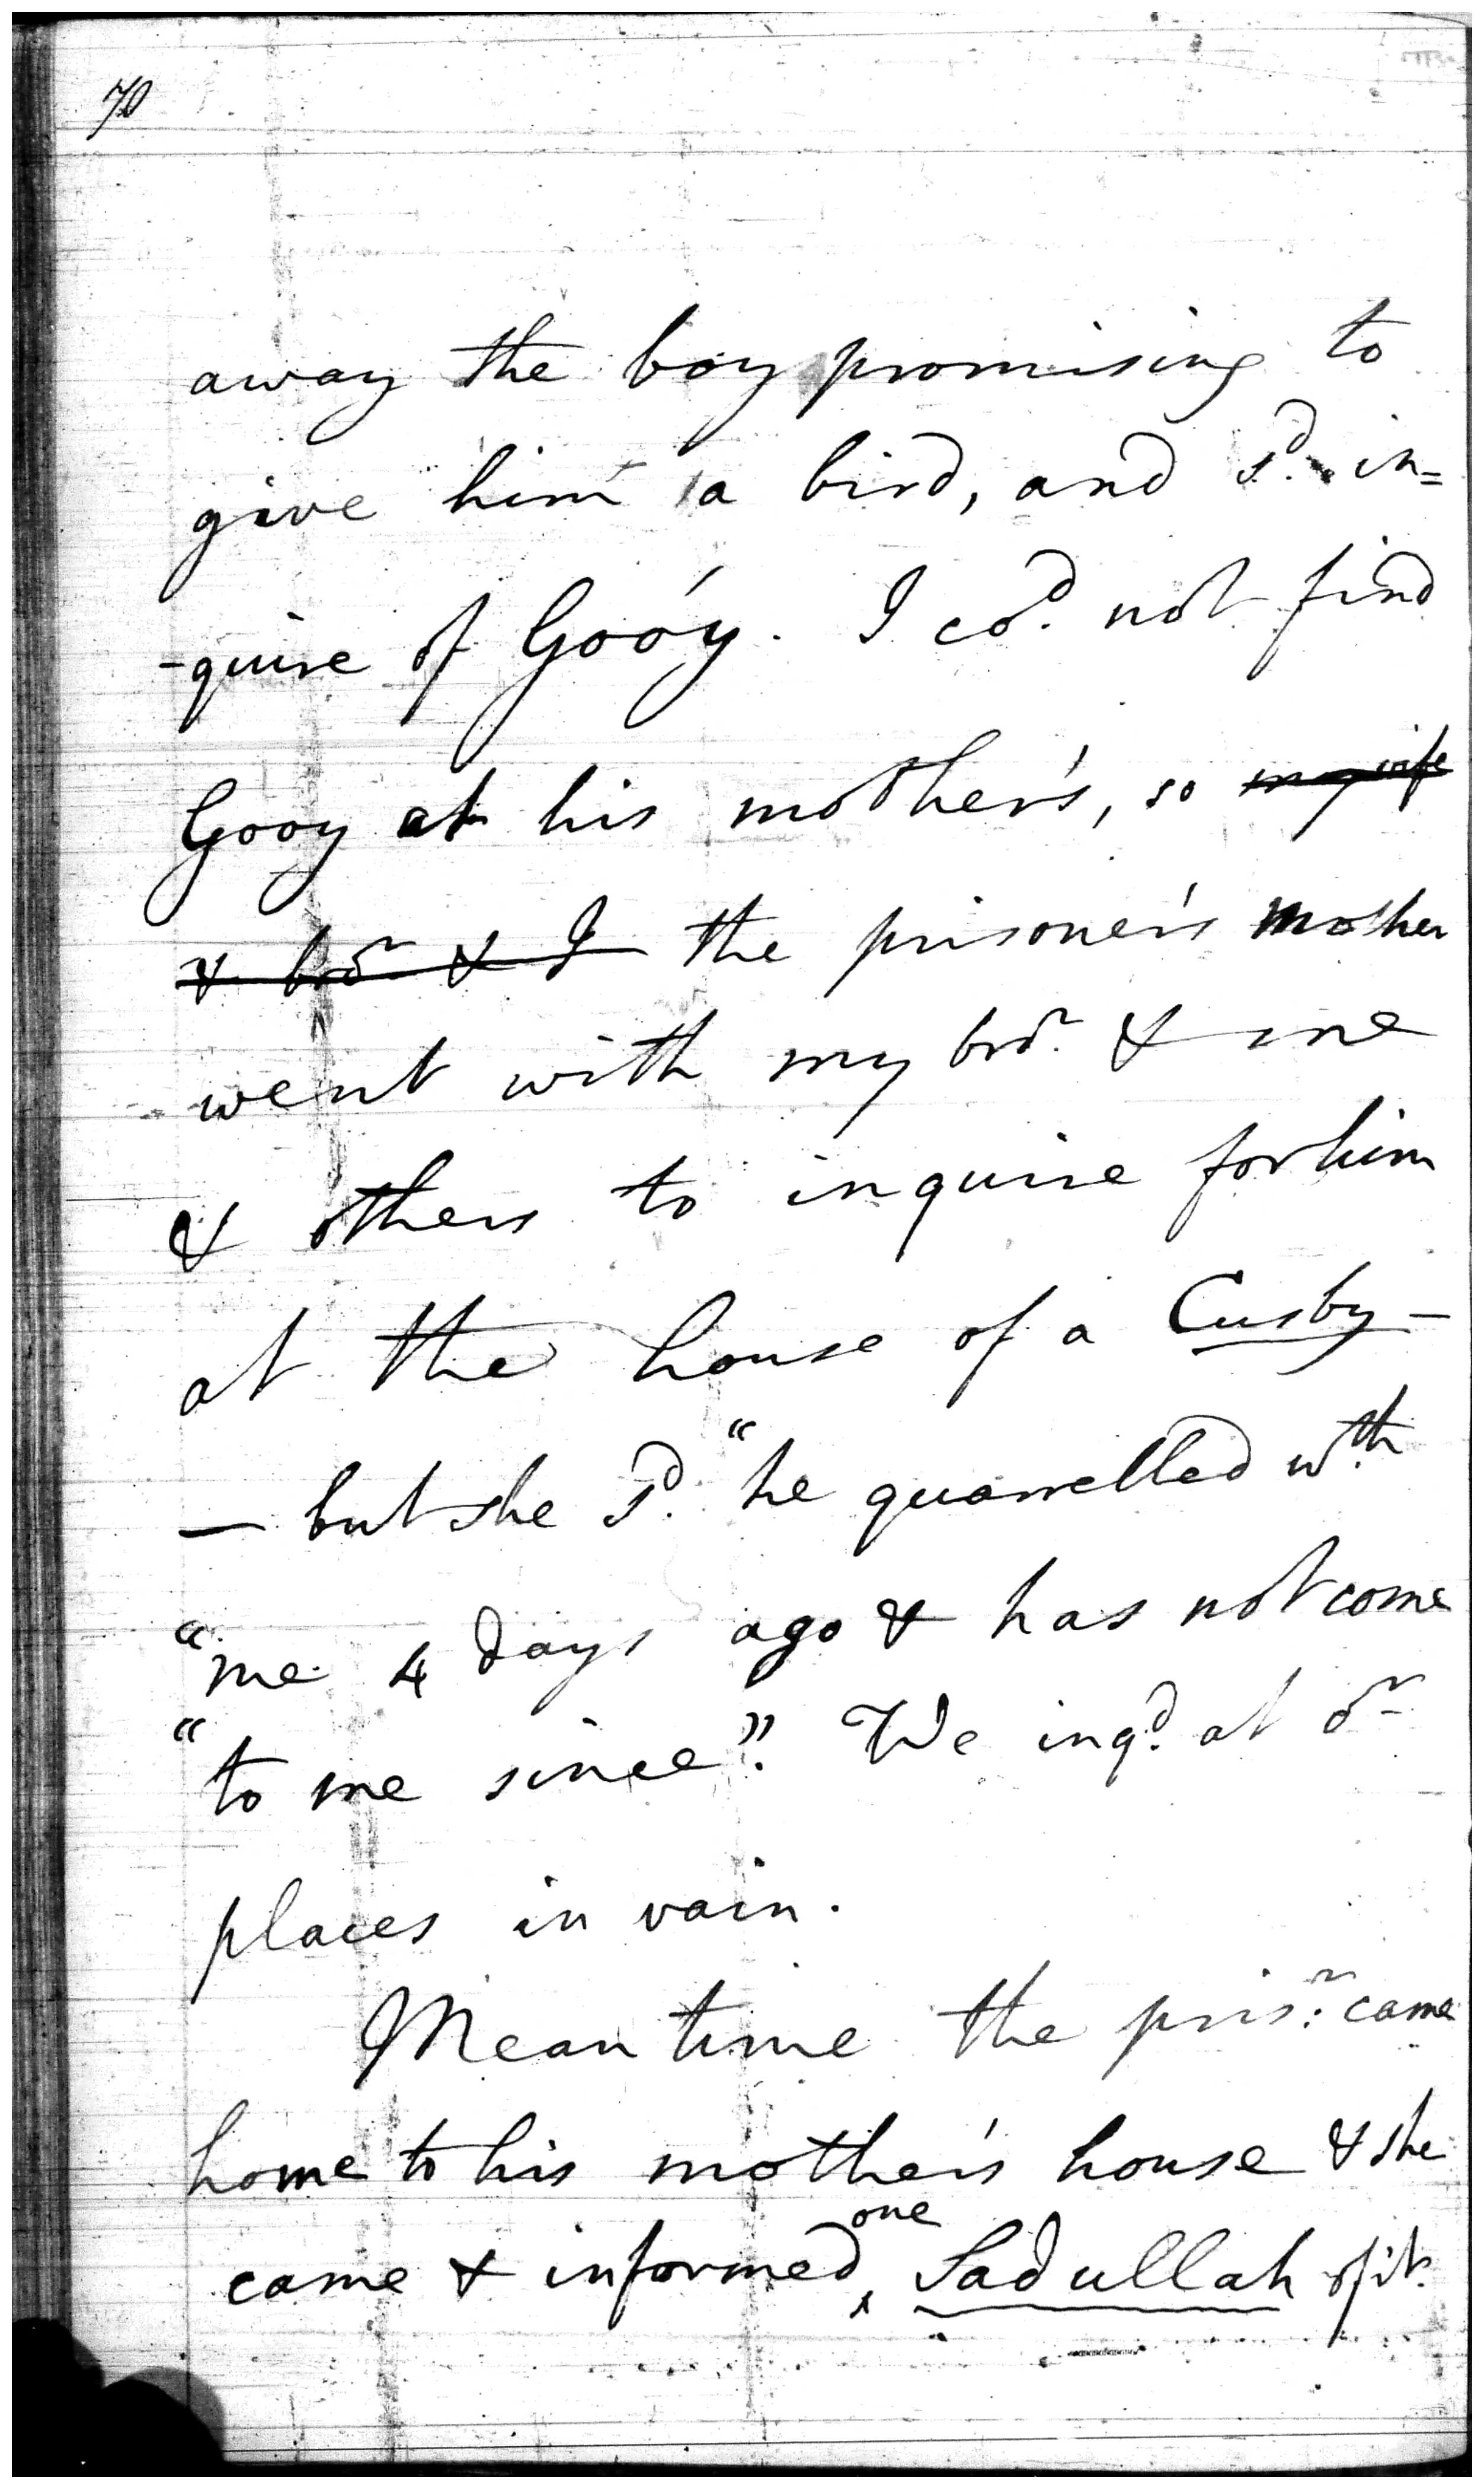 70
away the boy promising to
give him a bird, and sd. in=
-quire of Gooy. I cod. not find
Gooy at his mother's, so my wife
& bror & I the prisoner's mother
went with my bror. & me
& others to inquire for him
at the house of a Cusby —
— but she sd. "he quarrelled wth
"me 4 days ago & has not come
"to me since". We inqd. at or
places in vain.
Mean time the prisr. came
home to his mother's house & she
one
came & informed Sadullah of it.